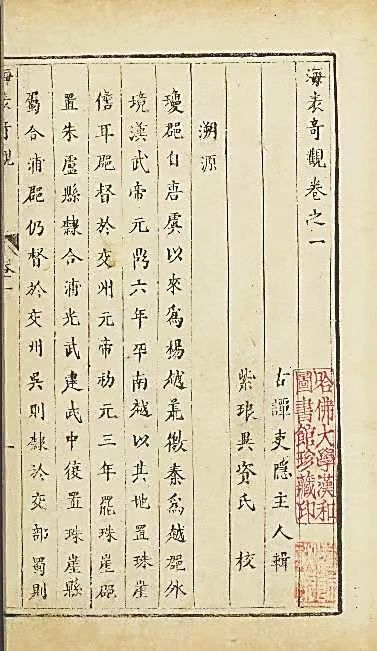 海表奇觀卷之一
古譚吏隱主人輯
紫琅異資氏 校
哈佛大學漢和圖書館珍藏印
溯源
瓊郡自唐虞以來爲楊越荒徼秦爲越郡外
境漢武帝元鼎六年平南越以其地置珠崖
儋耳郡督於交州元帝初元三年罷珠崖郡
置朱盧縣隸合浦光武建武中復置珠崖縣
屬合浦郡仍督於交州吳則隸於交部蜀則
海表奇觀 卷一 一